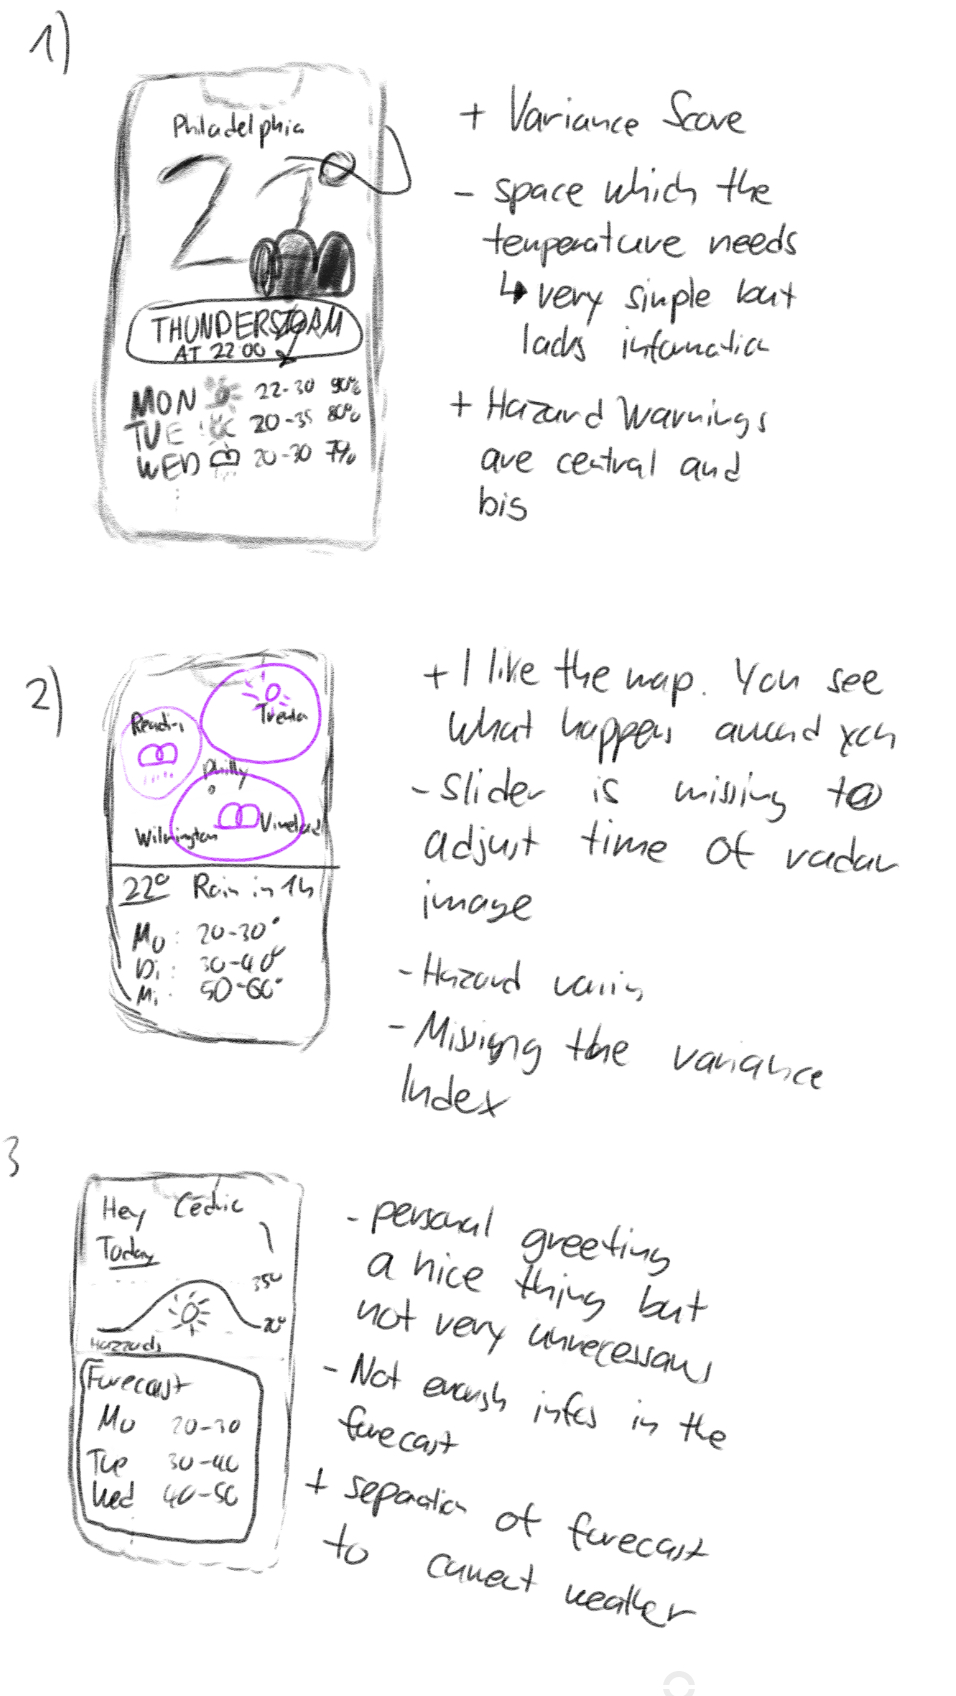 1)
Philadelphia
27
THUNDERSTORM
AT 22:00
MON 22-30 90%
TUE 20-35 80%
WED 20-30 79%
+ Variance Score
- space which the
temperature needs
↳ very simple but
lacks information
+ Hazard Warnings
are central and
big
2)
Trenton
Philly
Wilmington Vineland
22° Rain in 1h
Mo: 20-30°
Di: 30-40°
Mi: 50-60°
+ I like the map. You see
what happens around you
- slider is missing to
adjust time of radar
image
- Hazard
- Missigng the variance
Index
3
Hey Cedric
Today
35°
20°
Hazzards
Forecast
Mo 20-30
Tue 30-40
Wed 40-50
- personal greeting
a nice thing but
not very unnecessary
- Not enough infos in the
forecast
+ separation of forecast
to current weather